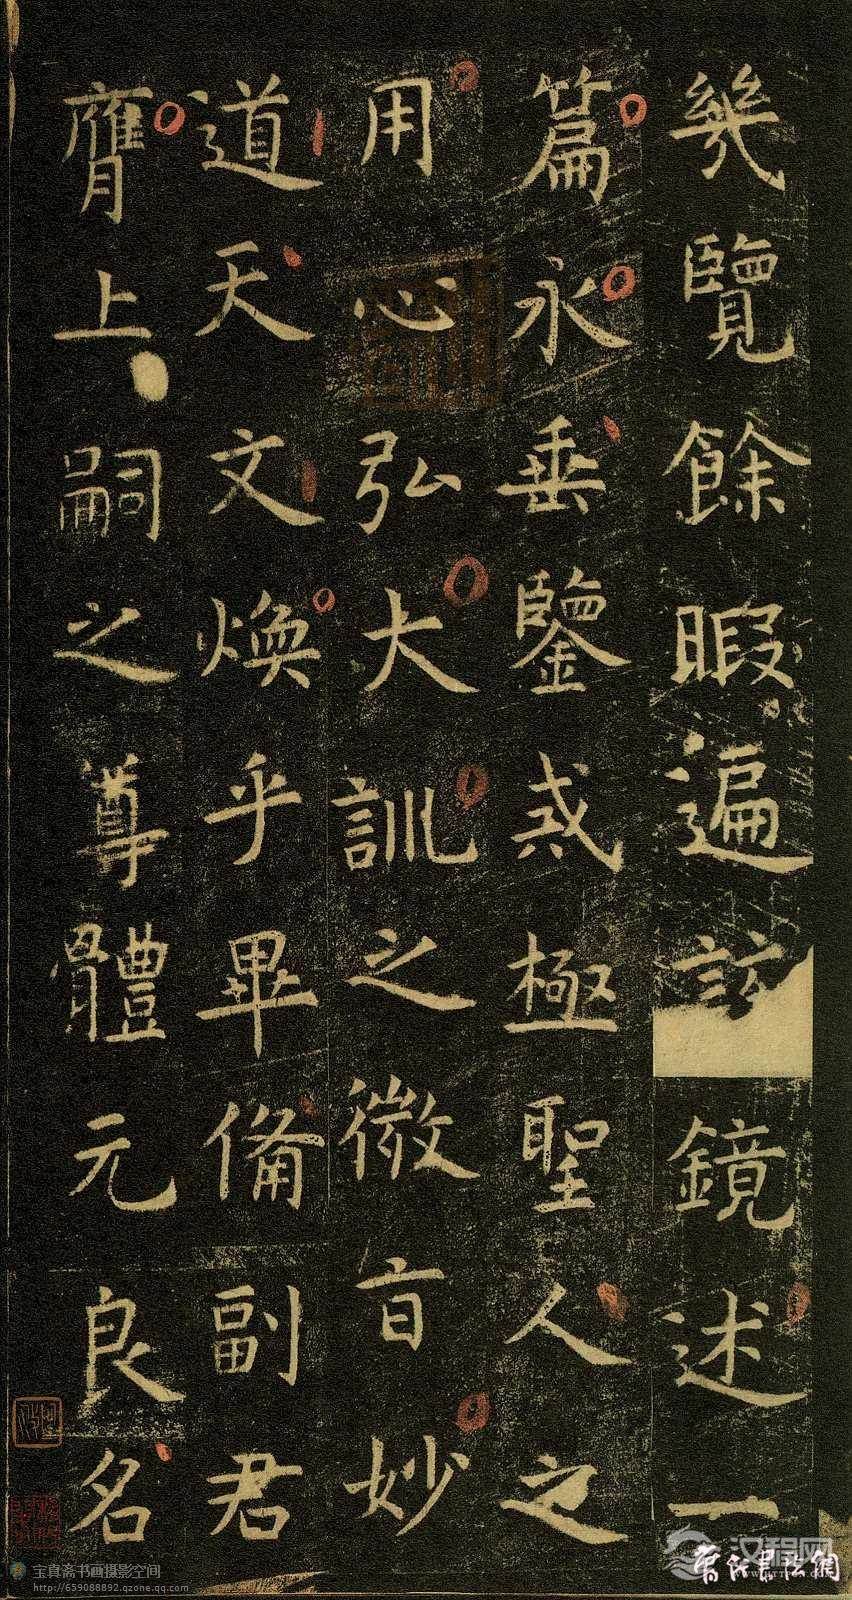 幾覽餘暇遍鏡述一
篇永垂鑒戒極聖人之
用心弘大訓之微旨妙
道天文煥乎畢備副君
膺上嗣之尊體元良名
宝真斋书画摄影空间
http://659088892.qzone.qq.com
汉程网